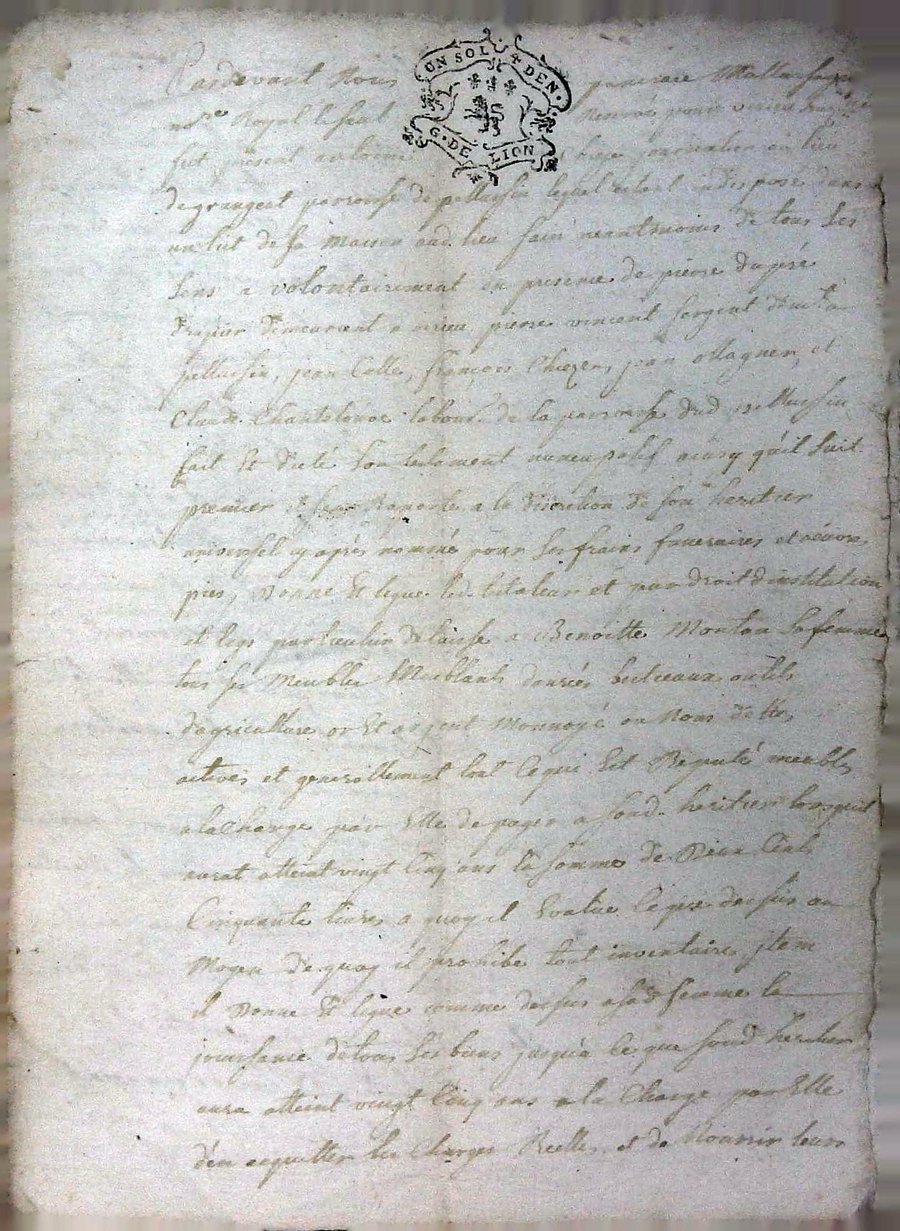 UN SOL 4 DEN.
G. DE LION
Pardevant Nous
no.re Royal
fut present antoine journalier du lieu
de grangeat parroisse de pellussin lequel estant indisposé dans
un lit de sa maison aud. lieu sain neantmoins de tous ses
sens a volontairement en presence de pierre dupré
demeurant a pierre vincent sergent
pellussin, jean Colle, françois Chiezes, jean ollagner, et
Claude Chantelouve labour. de la parroisse dud pellussin
fait et dicté son testament nuncupatif ainsy qu'il suit
premier raporte a la discretion de son heritier
universel cy après nommé pour ses fraix funeraires et oeuvres
pies, Donne Et legue led. testateur et par droit d'institution
et legs particulier delaisse a Benoitte Monton sa femme
tous ses Meubles Meublants danrées bestieaux outils
d'agriculture or Et argent Monnoyé ou Non dettes
actives et generallement tout ce qui Est Reputé meubles
a la Charge par Elle de payer a sond. heritier lorsquil
aurat atteint vingt Cinq ans la somme de Deux Cents
Cinquante livres a quoy il Evalue ce que dessus au
Moyen de quoy il prohibe tout inventaire, jtem
il Donne Et legue comme dessus a sad. femme la
jouissance de tous ses biens jusqu'a ce que soud heritier
aura atteint vingt Cinq ans a la Charge par Elle
d'en acquitter les Charges Reelles, et de Nourrir leurs